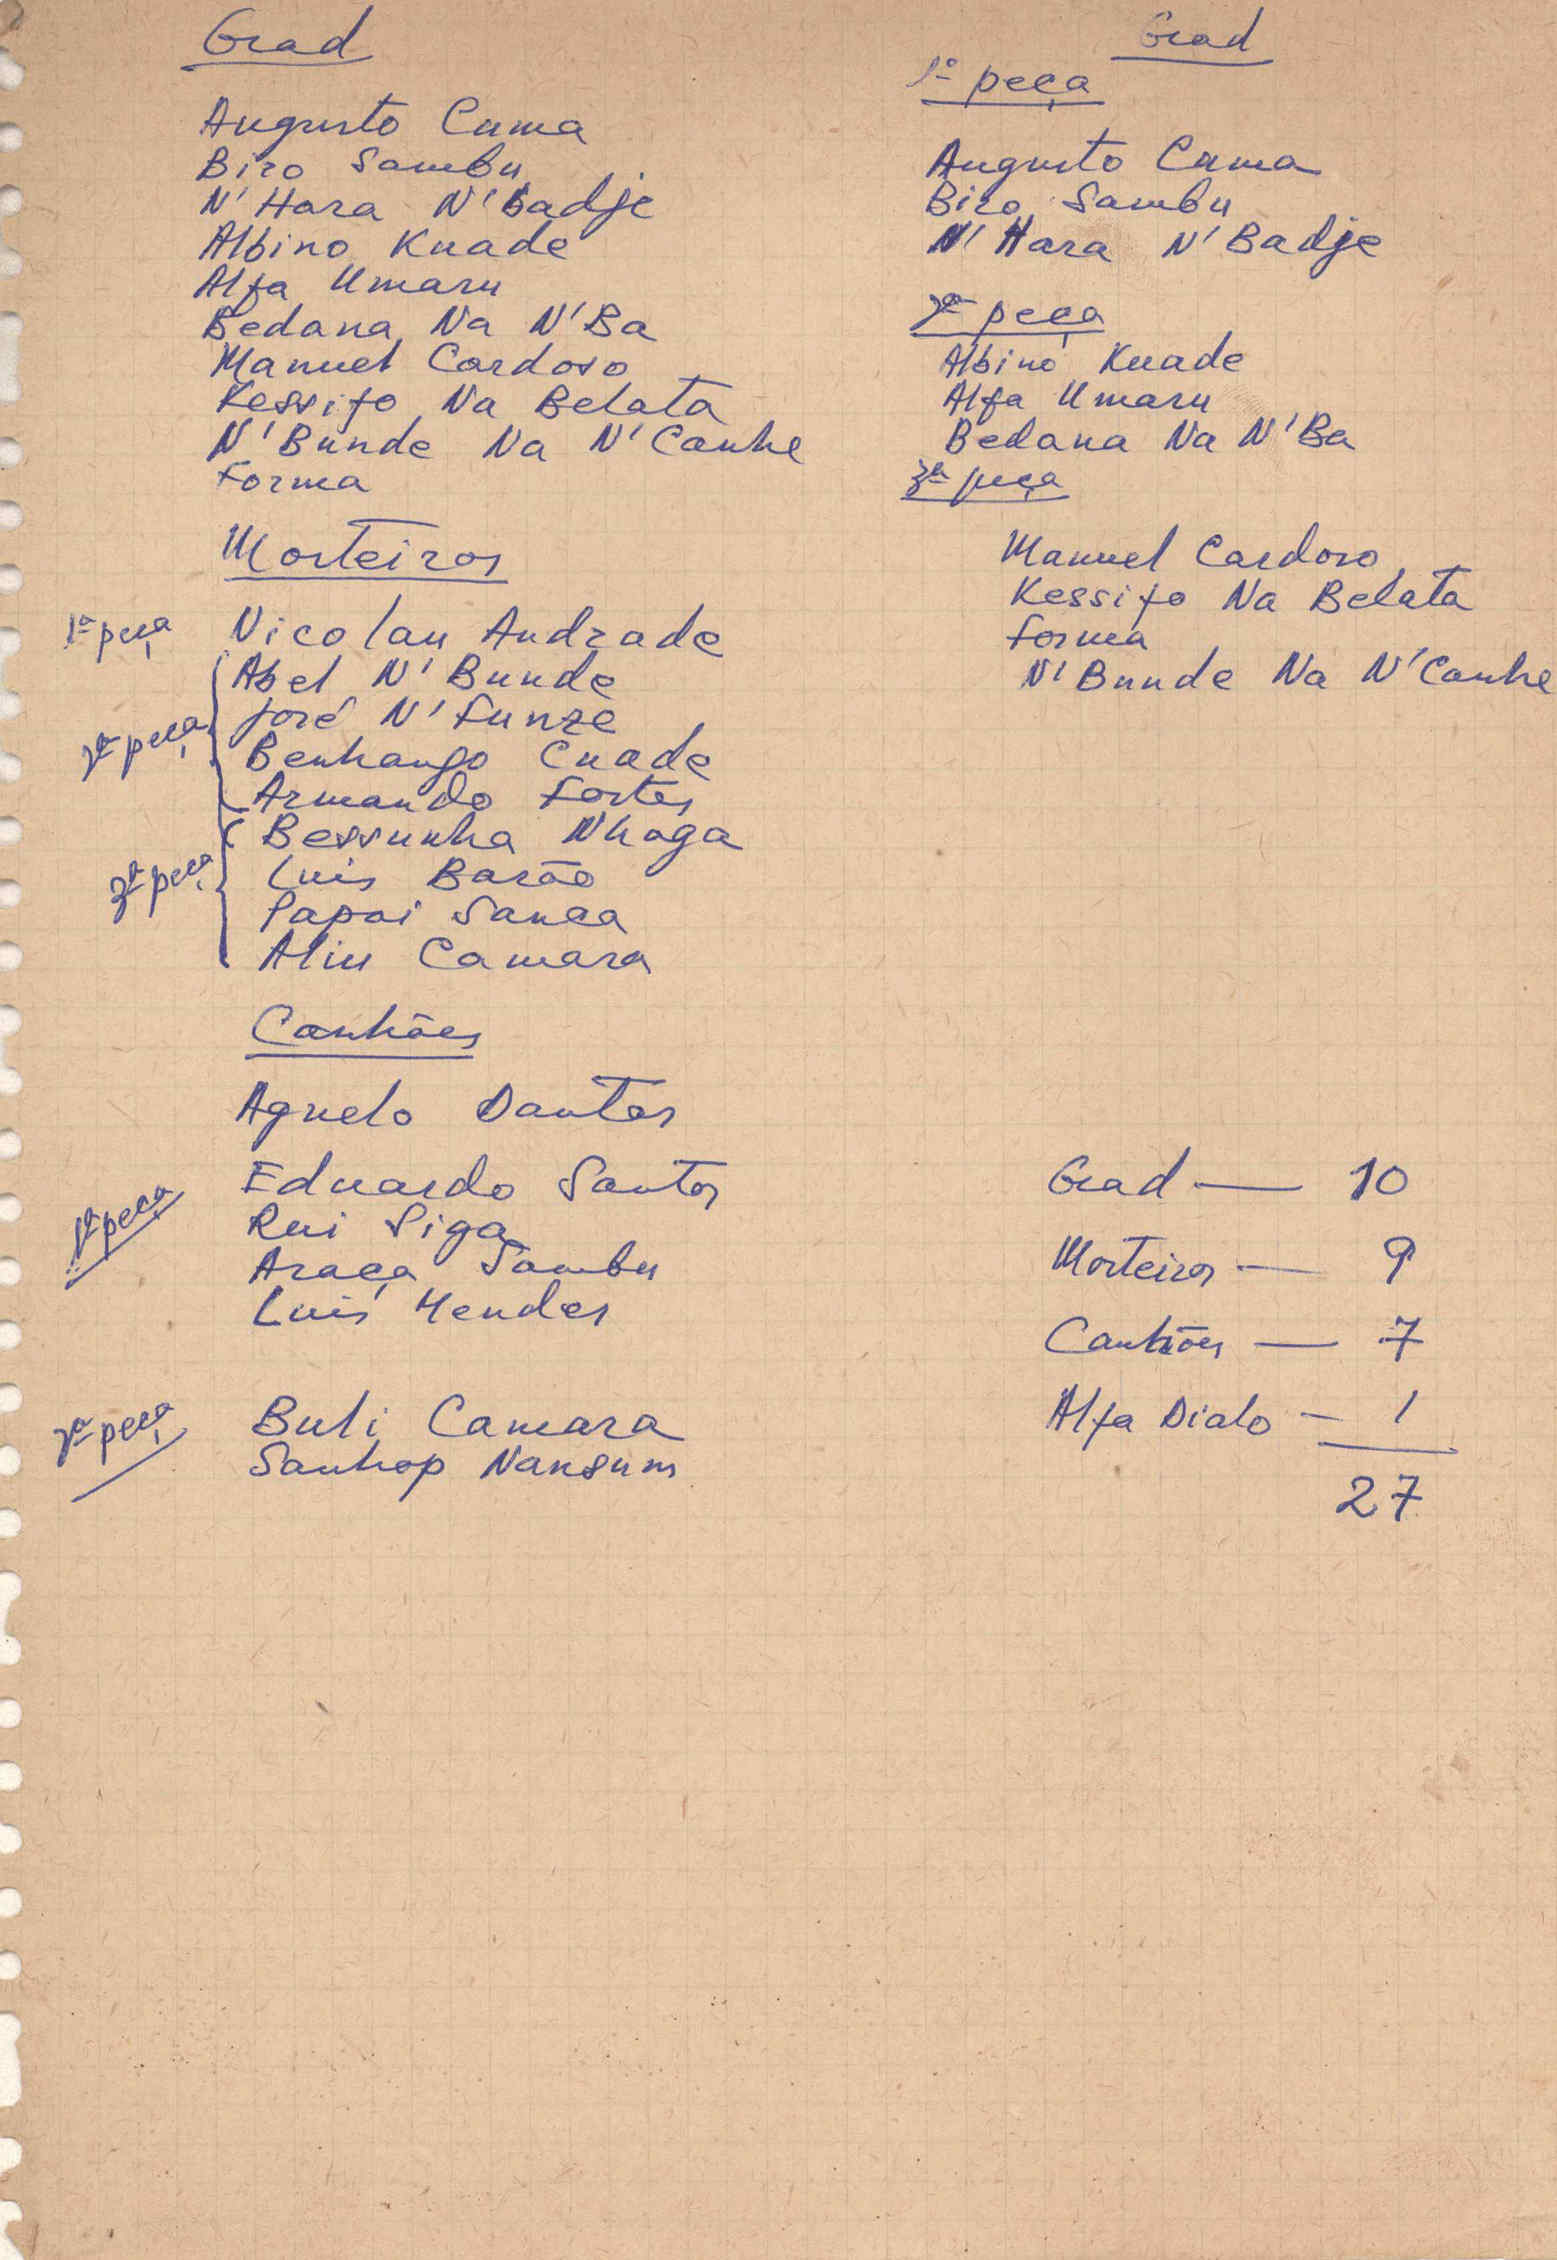 Grad
Augusto Cuma
Biro Sambu
N'Hara N'Badje
Albino Kuade
Alfa Umaru
Bedana Na N'Ba
Manuel Cardoso
Kessifo Na Belata
N'Bunde Na N'Canhe
Forma
Morteiros
1ª peça Nicolau Andrade
Abel N'Bunde
José N'Funze
2ª peça Benhango Cuade
Armando Fortes
Bessunha Nhaga
3ª peça Luis Barão
Papai Sanca
Aliu Camara
Canhões
Agnelo Dantas
Eduardo Santos
1ª peça Rui Siga
Araça Sambu
Luis Mendes
2ª peça Buli Camara
Sanhop Nansum
Grad
1ª peça
Augusto Cuma
Biro Sambu
N'Hara N'Badje
2ª peça
Albino Kuade
Alfa Umaru
Bedana Na N'Ba
3ª peça
Manuel Cardoso
Kessifo Na Belata
Forma
N'Bunde Na N'Canhe
Grad — 10
Morteiros — 9
Canhões — 7
Alfa Dialo — 1
27